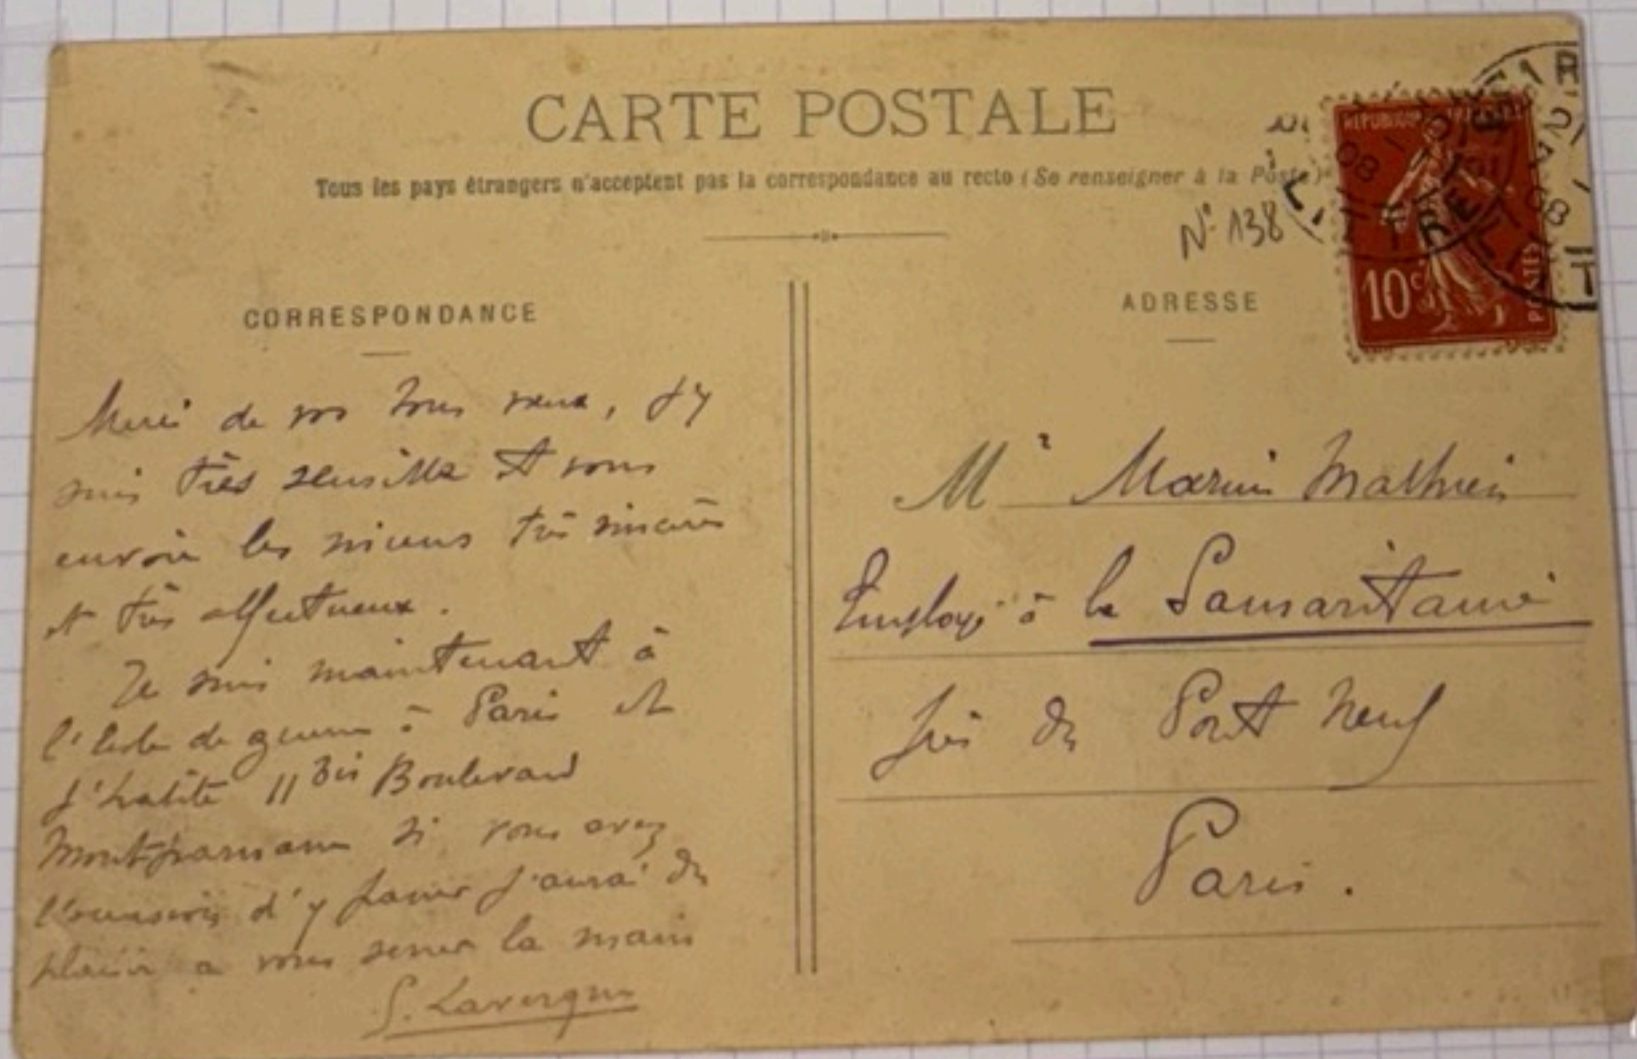 CARTE POSTALE
Tous les pays étrangers n'acceptent pas la correspondance au recto (Se renseigner à la Poste)
N° 138
REPUBLIQUE FRANÇAISE
10c
POSTES
08
CORRESPONDANCE
ADRESSE
Merci de vos bons vœux, j'y
suis très sensible et vous
envoie les miens très sincères
et très affectueux.
Je suis maintenant à
l'école de guerre à Paris et
j'habite 11 bis Boulevard
Montparnasse si vous avez
l'occasion d'y passer j'aurai du
plaisir a vous serrer la main
G. Lavergne
Mr Marius Mathieu
Employé à la Samaritaine
près du Pont Neuf
Paris.